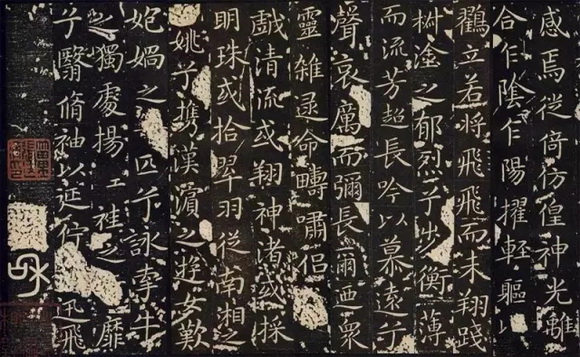 感焉徙倚仿偟神光離
合乍陰乍陽擢輕軀以
鶴立若將飛飛而未翔踐
椒塗之郁烈兮步衡薄
而流芳超長吟以慕遠兮
聲哀厲而彌長爾迺眾
靈雜遝命疇嘯侶
戲清流或翔神渚或採
明珠或拾翠羽從南湘之
姚兮攜漢濱之遊女歎
妃媧之匹兮詠牽牛
之獨處揚袿之靡
兮翳脩袖以延佇迅飛